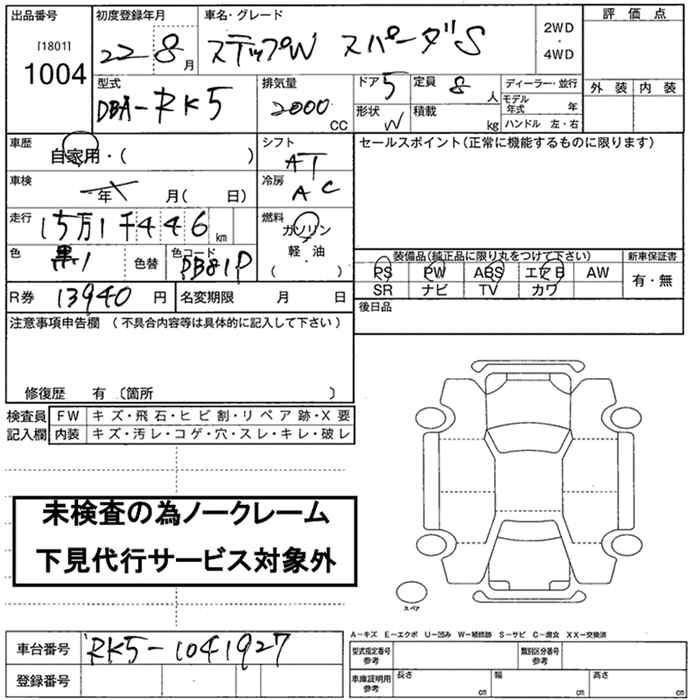 出品番号 初度登録年月 車名・グレード 2WD・4WD 評価点
[1801]
1004 22 8月 ステップW スパーダS
型式 排気量 ドア 5 定員 8人 ディーラー・並行 外装 内装
DBA-RK5 2000CC 形状 W 積載 kg モデル年式 年
ハンドル 左・右
車歴 自家用・( ) シフト AT セールスポイント(正常に機能するものに限ります)
車検 年 月( 日) 冷房 AC
走行 15万1千446km 燃料 ガソリン・軽油・( )
色 黒1 色替 色コード PB81P
装備品(純正品に限り丸をつけて下さい) 新車保証書
PS PW ABS エアB AW 有・無
SR ナビ TV カワ
R券 13940円 名変期限 月 日 後日品
注意事項申告欄 (不具合内容等は具体的に記入して下さい)
修復歴 有 〔箇所 〕
検査員 FW キズ・飛石・ヒビ割・リペア跡・X要
記入欄 内装 キズ・汚レ・コゲ・穴・スレ・キレ・破レ
未検査の為ノークレーム
下見代行サービス対象外
スペア
A-キズ E-エクボ U-凹み W-補修跡 S-サビ C-腐食 XX-交換済
車台番号 RK5-1041927 型式指定番号 参考 類別区分番号 参考
登録番号 車庫証明用 参考 長さ cm 幅 cm 高さ cm